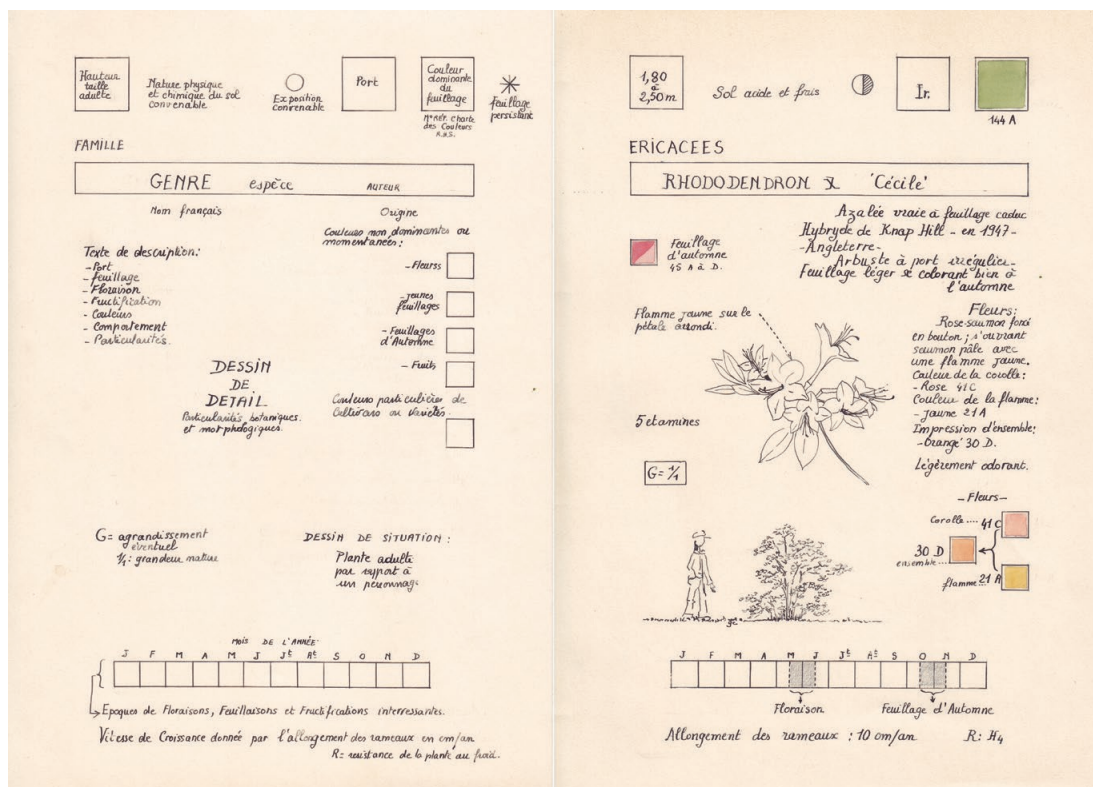 Hauteur
taille
adulte
Nature physique
et chimique du sol
convenable
Exposition
convenable
Port
Couleur
dominante
du
feuillage
N° Réf. Charte
des Couleurs
R.H.S.
feuillage
persistant
FAMILLE
GENRE espèce AUTEUR
Nom français
Origine
Texte de description:
- Port
- feuillage
- Floraison
- Fructification
- Couleurs
- Comportement
- Particularités.
Couleurs non dominantes ou
momentanées:
- Fleurss
- jeunes
feuillages
- Feuillages
d'Automne
- Fruits
DESSIN
DE
DETAIL
Particularités botaniques
et morphologiques.
Couleurs particulières de
Cultivars ou Variétés.
G = agrandissement
éventuel
1/1: grandeur nature
DESSIN DE SITUATION :
Plante adulte
par rapport à
un personnage
MOIS DE L'ANNÉE
J F M A M J Jt At S O N D
Epoques de Floraisons, Feuillaisons et Fructifications interressantes.
Vitesse de Croissance donnée par l'allongement des rameaux en cm/an
R = resistance de la plante au froid.
1,80
à
2,50 m
Sol acide et frais
Ir.
144 A
ERICACEES
RHODODENDRON X 'Cécile'
Azalée vraie à feuillage caduc
Hybryde de Knap Hill - en 1947 -
- Angleterre -
Arbuste à port irrégulier.
Feuillage léger se colorant bien à
l'automne
Feuillage
d'automne
45 A à D.
Flamme jaune sur le
pétale arrondi.
Fleurs:
Rose saumon foncé
en bouton ; s'ouvrant
saumon pâle avec
une flamme jaune.
Couleur de la corolle:
- Rose 41 C
Couleur de la flamme:
- Jaune 21 A
Impression d'ensemble:
- Orangé 30 D.
Légèrement odorant.
5 etamines
G = 1/1
- Fleurs -
Corolle .... 41 C
30 D
ensemble...
flamme 21 A
J F M A M J Jt At S O N D
Floraison
Feuillage d'Automne
Allongement des rameaux : 10 cm/an R: H4